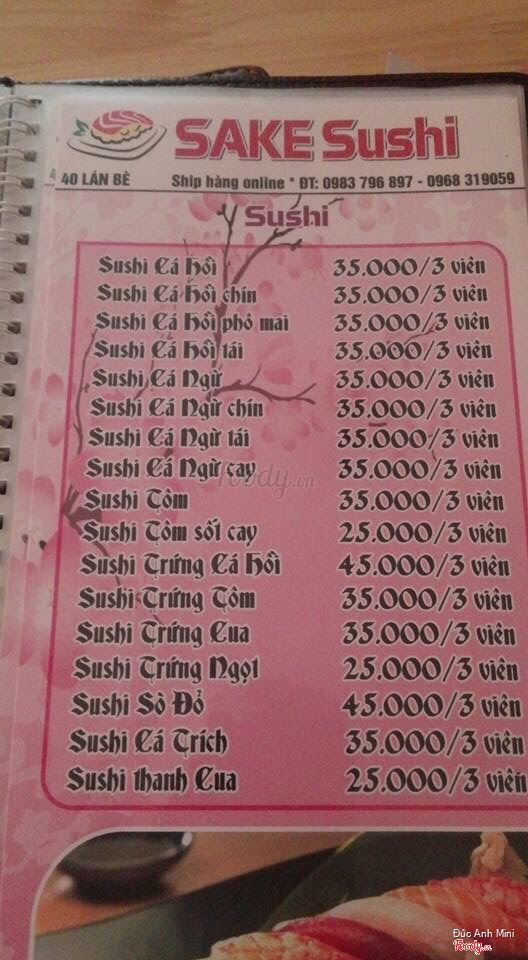 SAKE Sushi
40 LÁN BÈ Ship hàng online * ĐT: 0983 796 897 - 0968 319059
Sushi
Sushi Cá Hồi 35.000/3 viên
Sushi Cá Hồi chín 35.000/3 viên
Sushi Cá Hồi phô mai 35.000/3 viên
Sushi Cá Hồi tái 35.000/3 viên
Sushi Cá Ngừ 35.000/3 viên
Sushi Cá Ngừ chín 35.000/3 viên
Sushi Cá Ngừ tái 35.000/3 viên
Sushi Cá Ngừ cay 35.000/3 viên
Foody.vn
Sushi Tôm 35.000/3 viên
Sushi Tôm sốt cay 25.000/3 viên
Sushi Trứng Cá Hồi 45.000/3 viên
Sushi Trứng Tôm 35.000/3 viên
Sushi Trứng Cua 35.000/3 viên
Sushi Trứng Ngọt 25.000/3 viên
Sushi Sò Đỏ 45.000/3 viên
Sushi Cá Trích 35.000/3 viên
Sushi thanh Cua 25.000/3 viên
Đức Anh Mini
Foody.vn